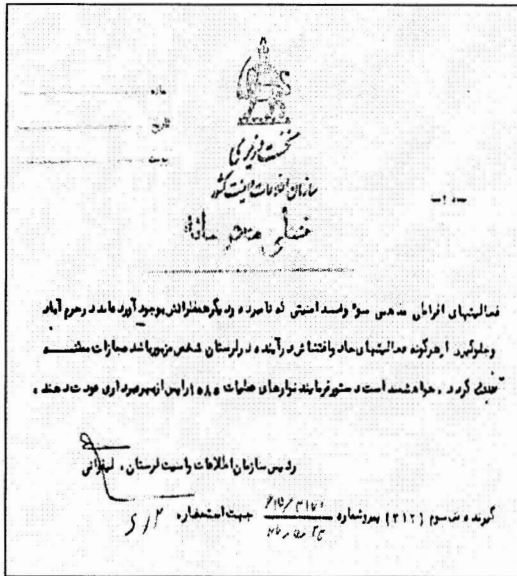 شماره
تاریخ
پیوست
نخست وزیری
سازمان اطلاعات و امنیت کشور
خیلی محرمانه
-۲-
فعالیتهای افراطی مذهبی سوء و ضد امنیتی که نامبرده و دیگر همفکرانش بوجود آورده‌اند در خرم آباد
و جلوگیری از هرگونه فعالیتهای حاد و اغتشاش در آینده در لرستان شخص مزبور باشد مجازات
گردد. خواهشمند است دستور فرمایند نوارهای عملیات ۱۰۸۵ را پس از بهره‌برداری عودت دهند.
رئیس سازمان اطلاعات و امنیت لرستان.
گیرنده سوم (۳۱۲) پیرو شماره جهت استحضار.